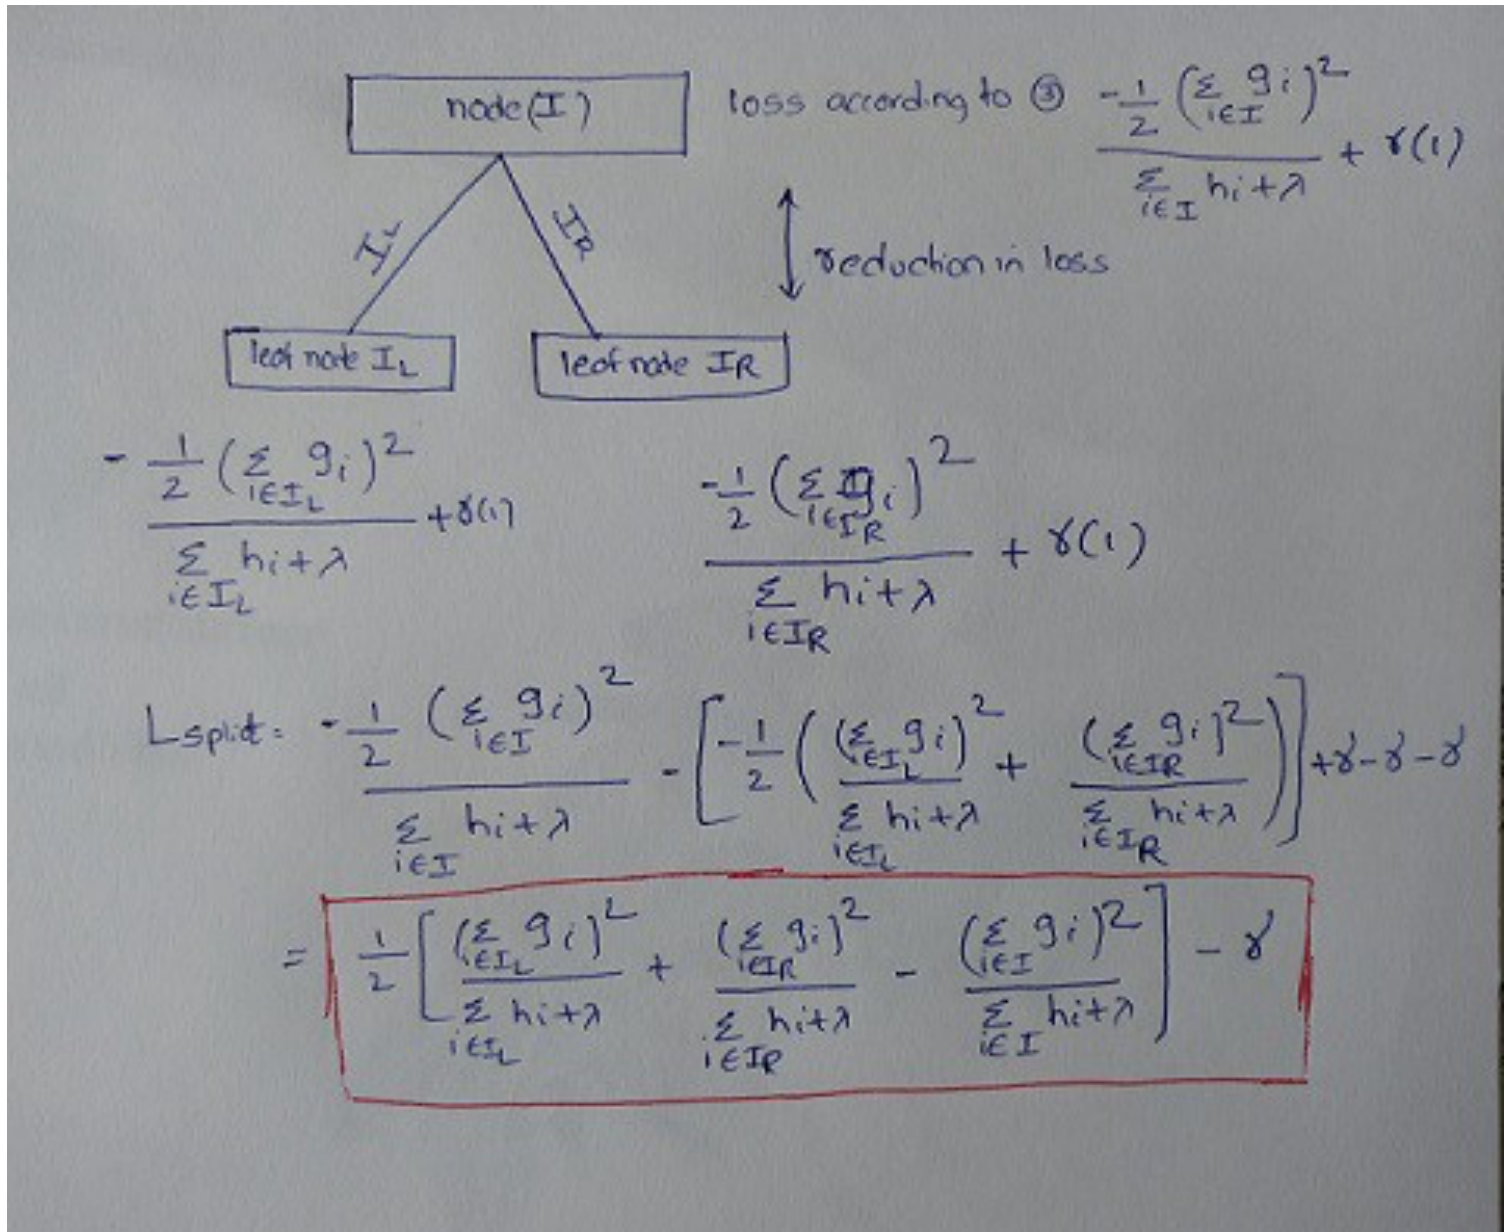 node(I) loss according to ③ -1/2 (Σ_{i∈I} gi)² / (Σ_{i∈I} hi+λ) + γ(1)
I_L I_R
reduction in loss
leaf node I_L leaf node I_R
- 1/2 (Σ_{i∈I_L} gi)² / (Σ_{i∈I_L} hi+λ) + γ(1)
-1/2 (Σ_{i∈I_R} gi)² / (Σ_{i∈I_R} hi+λ) + γ(1)
Lsplit = -1/2 (Σ_{i∈I} gi)² / (Σ_{i∈I} hi+λ) - [-1/2 ((Σ_{i∈I_L} gi)² / (Σ_{i∈I_L} hi+λ) + (Σ_{i∈I_R} gi)² / (Σ_{i∈I_R} hi+λ))] +γ-γ-γ
= 1/2 [(Σ_{i∈I_L} gi)² / (Σ_{i∈I_L} hi+λ) + (Σ_{i∈I_R} gi)² / (Σ_{i∈I_R} hi+λ) - (Σ_{i∈I} gi)² / (Σ_{i∈I} hi+λ)] - γ